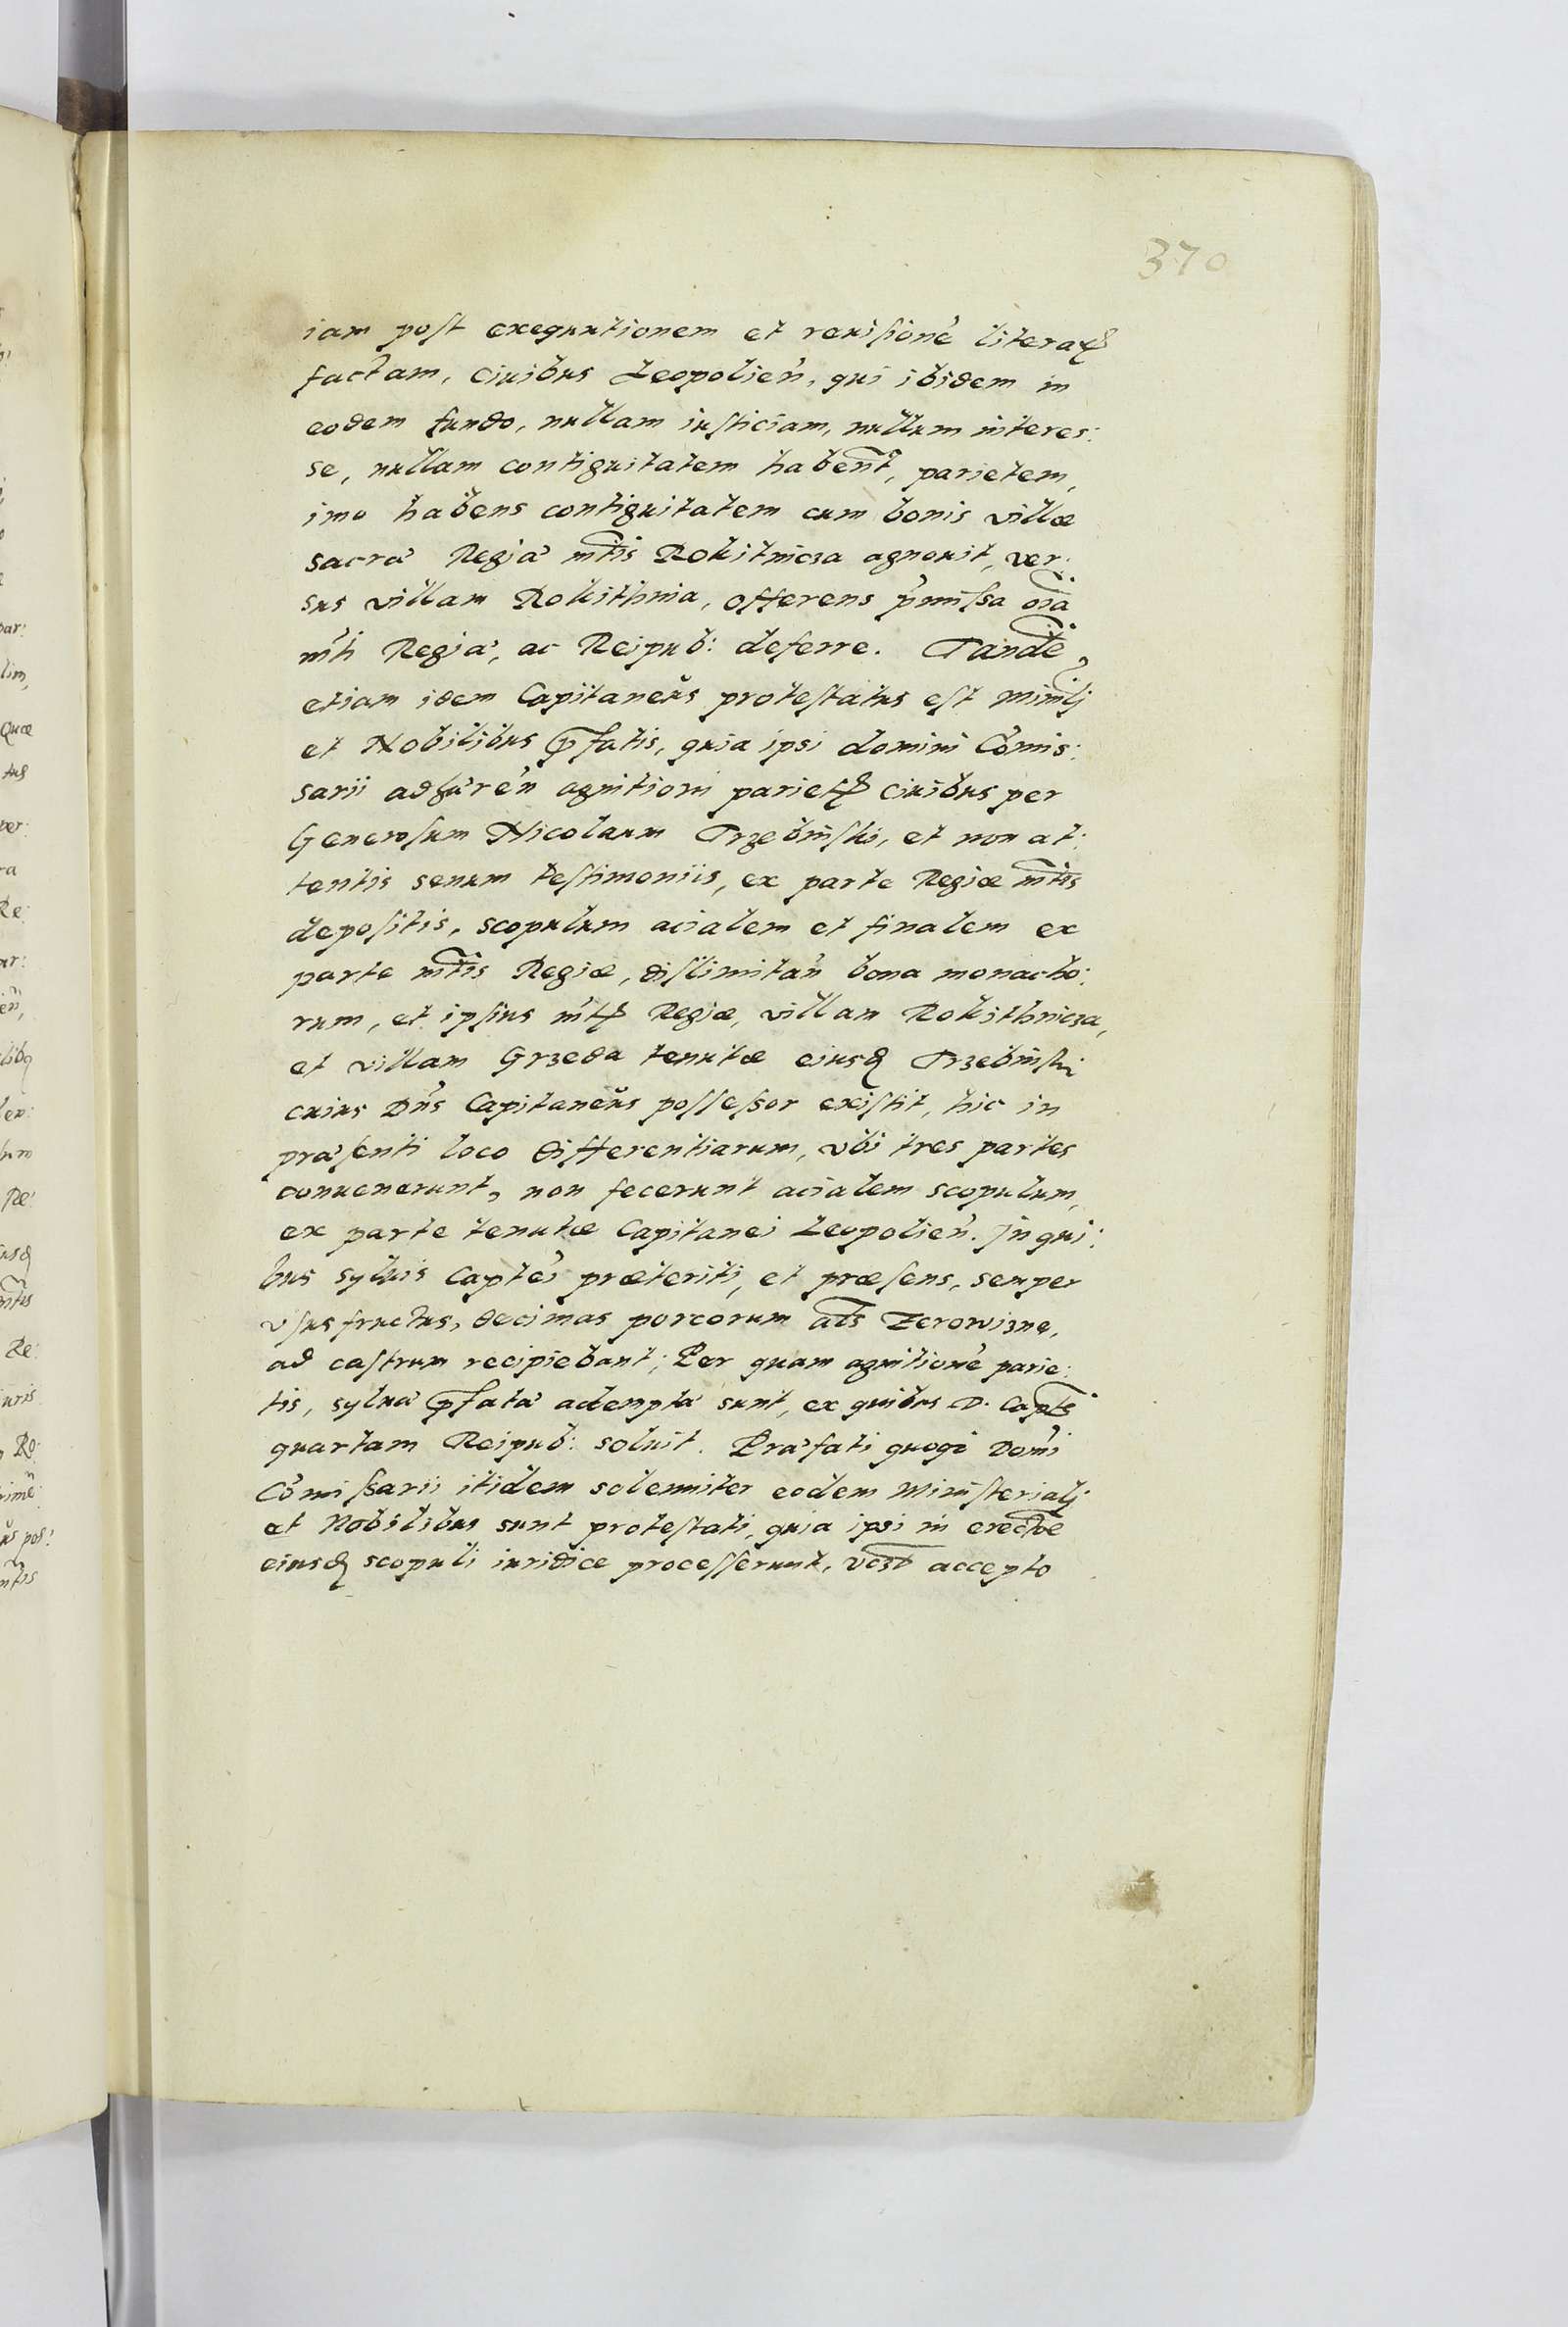 370
iam post exequutionem et reuisionē literaꝝ
factam, ciuibus Leopolien̄, qui ibidem in
eodem fundo, nullam iusticiam, nullum interes:
se, nullam contiguitatem habent, parietem,
imo habens contiguitatem cum bonis villæ
sacræ Regiæ mt̄is Rokitnicza agnouit, ver:
sus villam Rokithnia, offerens p̄missa oīa
mt̄i Regiæ, ac Reipub: deferre. Tandē
etiam idem Capitaneus protestatus est Min̄lj
et Nobilibus p̄fatis, quia ipsi domini Com̄is:
sarii adhæren̄ agnitioni parietꝭ ciuibus per
Generosum Nicolaum Trzebinski, et non at:
tentis senum testimoniis, ex parte Regiæ mt̄is
depositis, scopulum acialem et finalem ex
parte mt̄is Regiæ, dislimitan̄ bona monacho:
rum, et ipsius mt̄ꝭ Regiæ, villam Rokithnicza,
et villam Grzeda tenutæ eiusꝺ Trzebinski
cuius Dn̄s Capitaneus possessor existit, hic in
præsenti loco differentiarum, vbi tres partes
conuenerunt, non fecerunt acialem scopulum,
ex parte tenutæ Capitanei Leopolien̄. In qui:
bus syluis Captēi præteriti, et præsens, semper
vsusfructus, decimas porcorum al̄s Zerowizne,
ad castrum recipiebant; Per quam agnitionē parie:
tis, syluæ p̄fatæ ademptæ sunt, ex quibus D. Capt̄s
quartam Reipub: soluit. Præfati quoqꝫ Domī
Com̄issarii itidem solenniter eodem Ministerialj
et Nobilibus sunt protestati, quia ipsi in erect̄oe
eiusꝺ scopuli iuridice processerunt, accepto